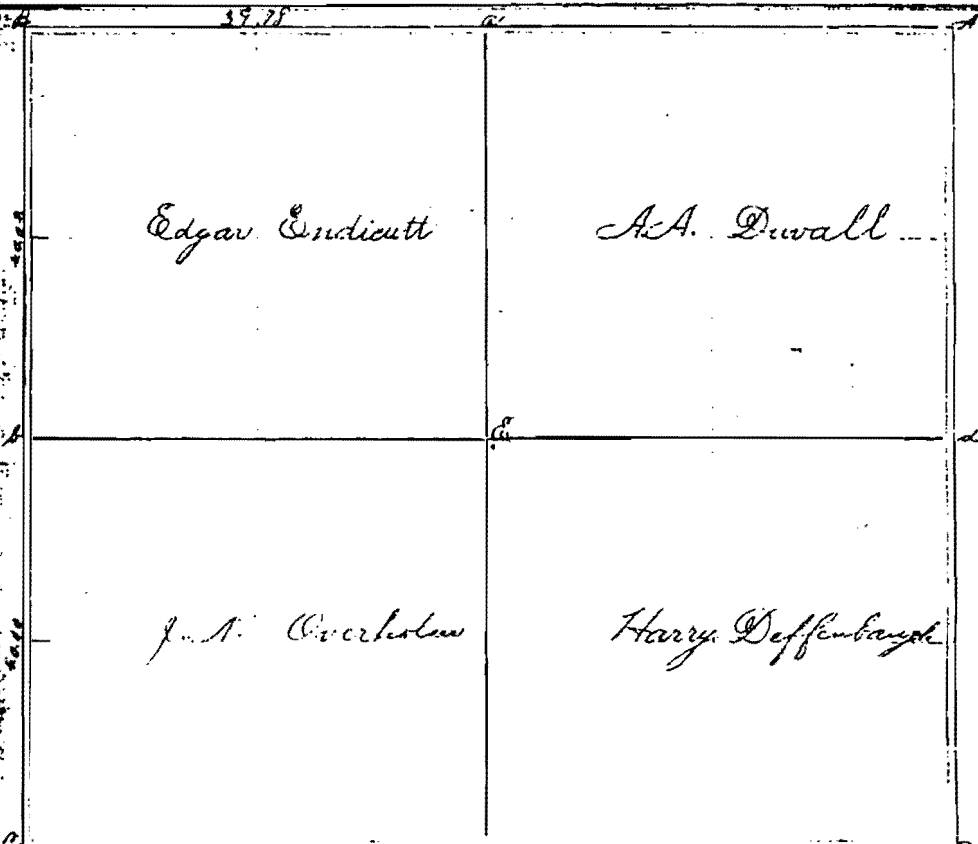 B 39.78 a A
Edgar Endicutt A.A. Duvall
b E d
J. N. Overholser Harry Deffenbaugh